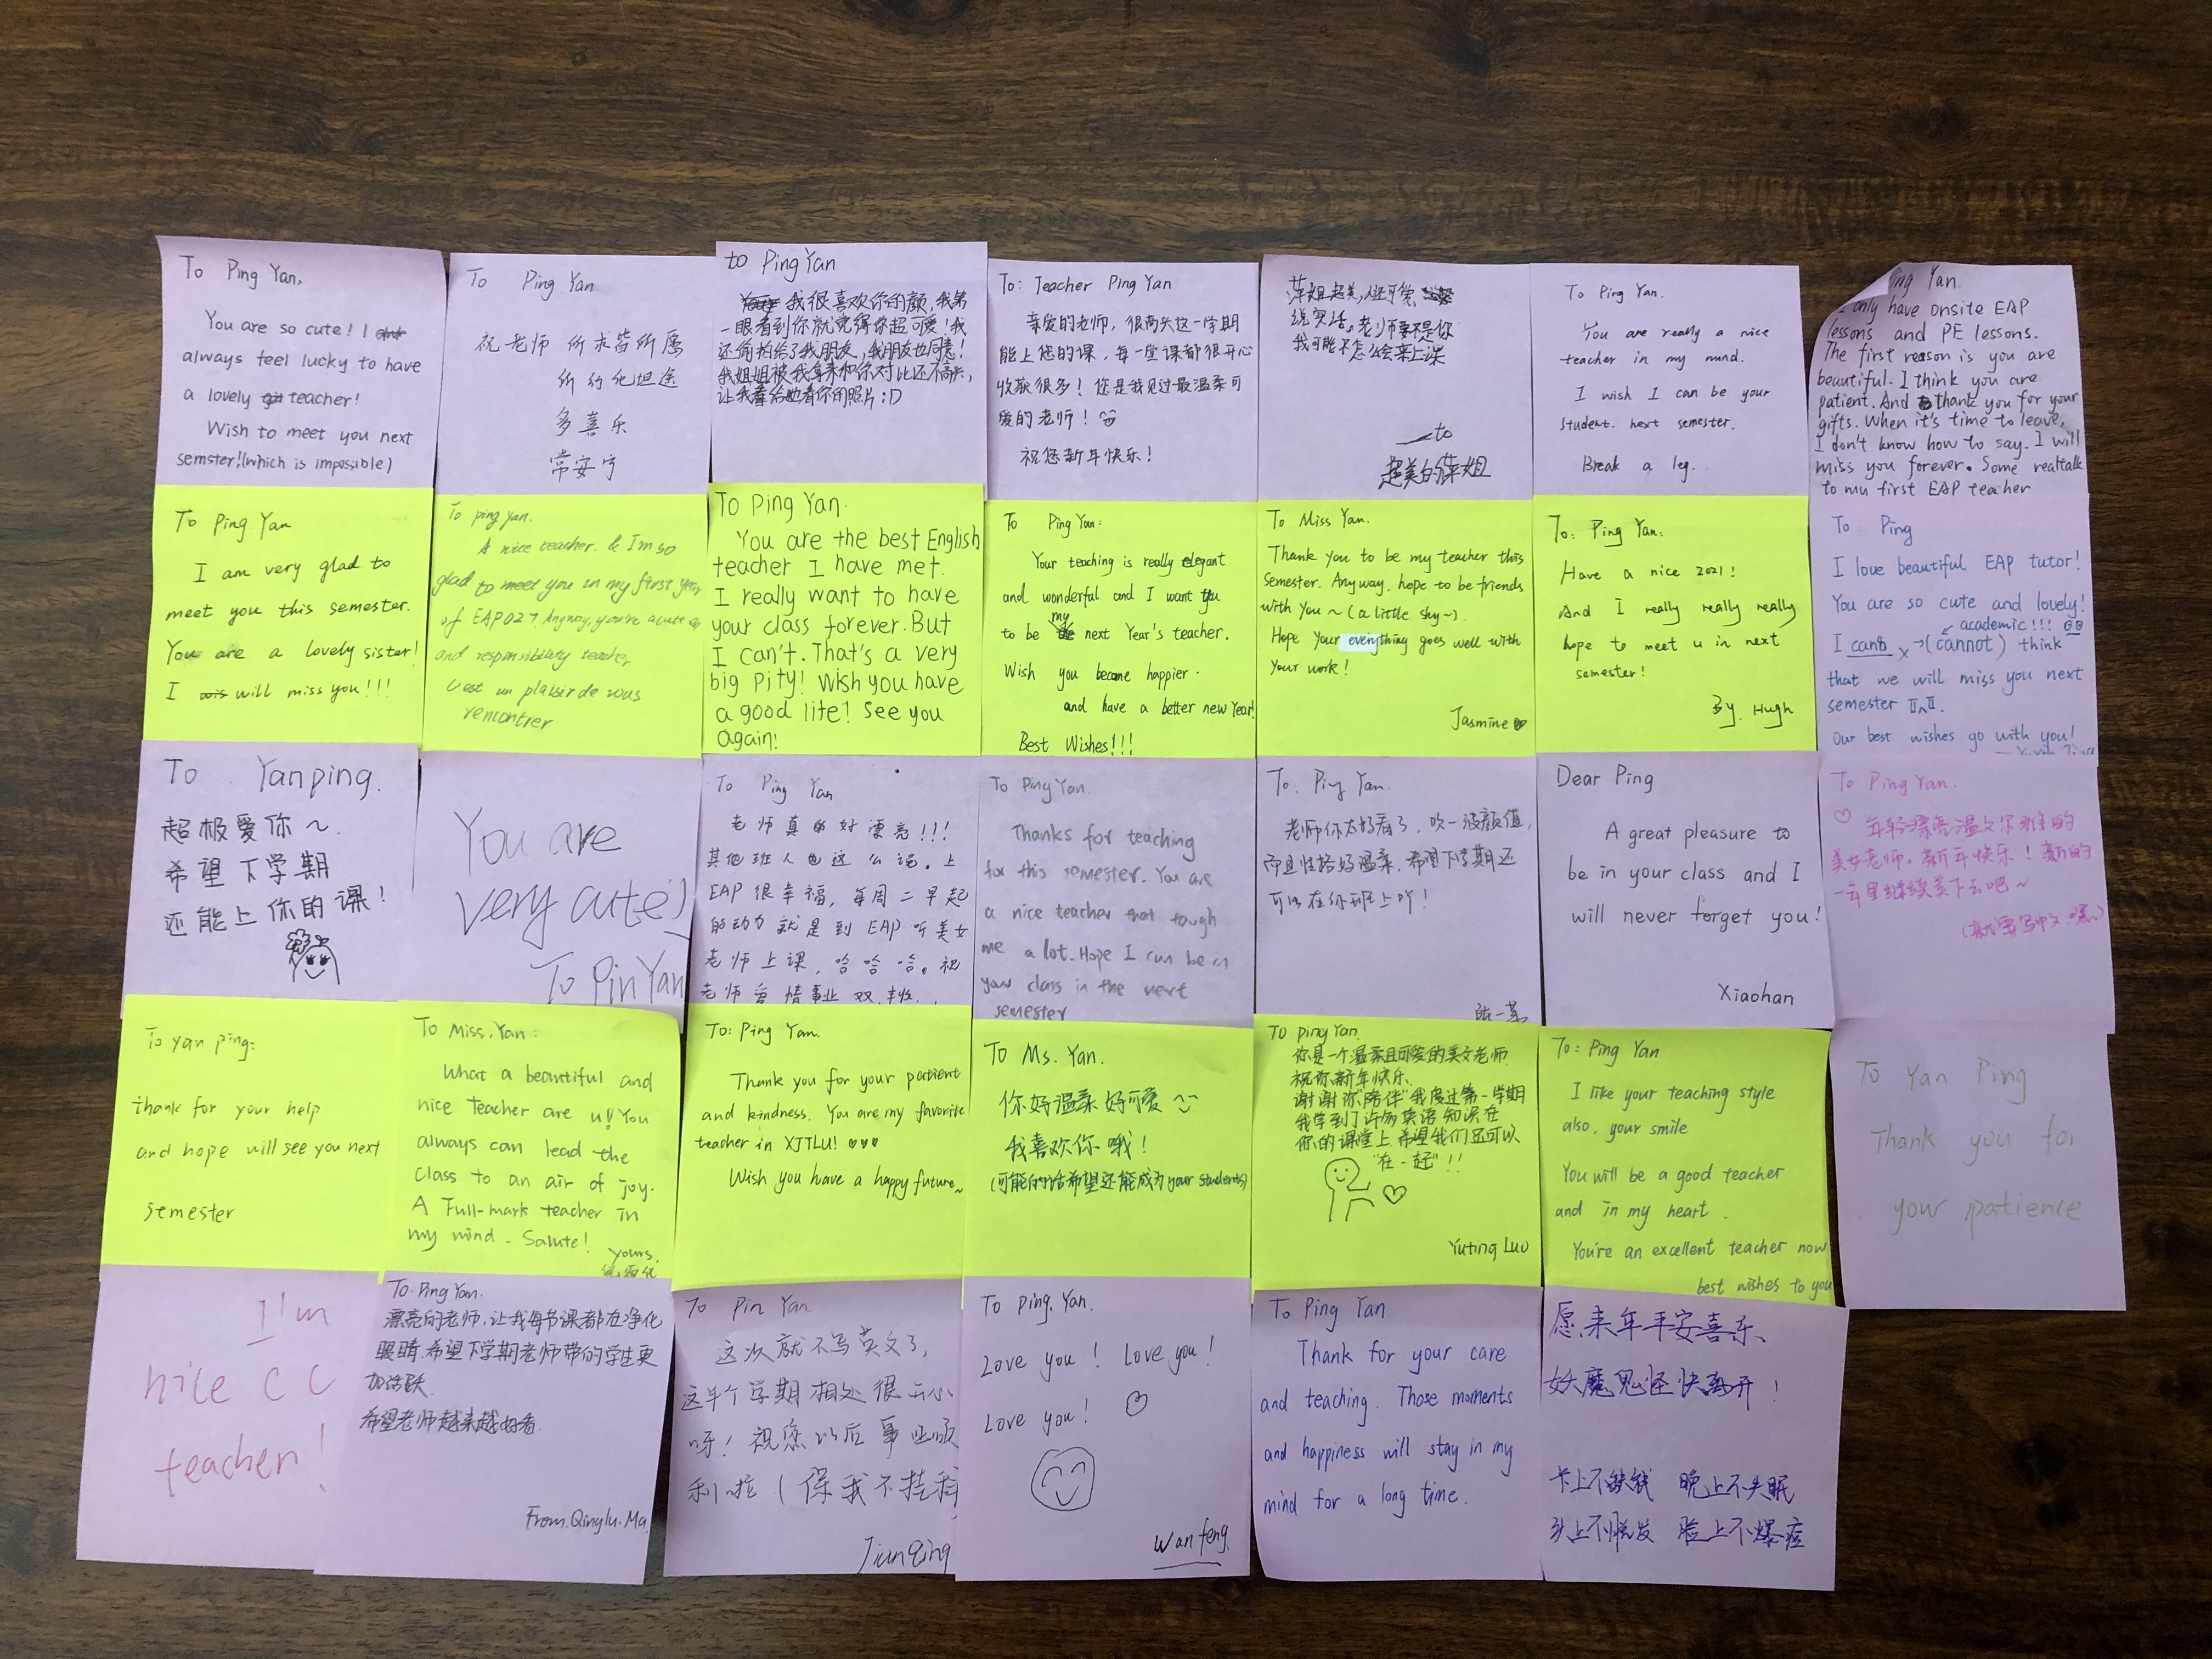 To Ping Yan,
You are so cute! I
always feel lucky to have
a lovely teacher!
Wish to meet you next
semster!(which is impossible)
To Ping Yan
祝老师 所求皆所愿
所行化坦途
多喜乐
常安宁
to Ping Yan
我很喜欢你的颜,我第
一眼看到你就觉得你超可爱!我
还偷拍给了我朋友,我朋友也同意!
我姐姐被我拿来和你对比还不高兴,
让我拿给她看你的照片:D
To: Teacher Ping Yan
亲爱的老师,很高兴这一学期
能上您的课,每一堂课都很开心
收获很多!您是我见过最温柔可
爱的老师!
祝您新年快乐!
萍姐超美,人还可爱,
说实话,老师要不是你
我可能不怎么会来上课
to
超美的萍姐
To Ping Yan.
You are really a nice
teacher in my mind.
I wish I can be your
student. next semester.
Break a leg.
Ping Yan.
I only have onsite EAP
lessons and PE lessons.
The first reason is you are
beautiful. I think you are
patient. And thank you for your
gifts. When it's time to leave,
I don't know how to say. I will
miss you forever. Some realtalk
to my first EAP teacher
To Ping Yan
I am very glad to
meet you this semester.
You are a lovely sister!
I will miss you!!!
To ping yan.
A nice teacher. & I'm so
glad to meet you in my first year
of EAP027. Anyway, you're a cute
and responsibility teacher
C'est un plaisir de vous
rencontrer
To Ping Yan.
You are the best English
teacher I have met.
I really want to have
your class forever. But
I can't. That's a very
big pity! Wish you have
a good life! See you
again!
To Ping Yan:
Your teaching is really elegant
and wonderful and I want you
to be my next Year's teacher.
Wish you became happier.
and have a better new Year!
Best Wishes!!!
To Miss Yan.
Thank you to be my teacher this
Semester. Anyway, hope to be friends
with you~ (a little shy~)
Hope your everything goes well with
your work!
Jasmine
To: Ping Yan:
Have a nice 2021!
And I really really really
hope to meet u in next
semester!
By. Hugh
To Ping
I love beautiful EAP tutor!
You are so cute and lovely!
academic!!!
I can't × →(cannot) think
that we will miss you next
semester
Our best wishes go with you!
To Yanping.
超极爱你~.
希望下学期
还能上你的课!
You are
very cute!
To Pin Yan
To Ping Yan
老师真的好漂亮!!!
其他班人也这么说。上
EAP很幸福,每周二早起
的动力就是到EAP听美女
老师上课,哈哈哈。祝
老师爱情事业双丰收.
To Ping Yan.
Thanks for teaching
for this semester. You are
a nice teacher that tough
me a lot. Hope I can be in
your class in the next
semester
To. Ping Yan.
老师你太好看了,吹一波颜值,
而且性格好温柔,希望下学期还
可以在你班上吖!
Dear Ping
A great pleasure to
be in your class and I
will never forget you!
Xiaohan
To Ping Yan.
年轻漂亮温文尔雅的
美女老师,新年快乐!新的
一年里继续美下去吧~
(就要写中文,嘿)
To yan ping:
thank for your help
and hope will see you next
semester
To Miss. Yan:
What a beautiful and
nice teacher are u!! You
always can lead the
class to an air of joy.
A Full-mark teacher in
my mind. Salute!
yours.
To: Ping Yan.
Thank you for your patient
and kindness. You are my favorite
teacher in XJTLU! ♥♥♥
Wish you have a happy future~
To Ms. Yan.
你好温柔好可爱
我喜欢你哦!
(可能的话希望还能成为your students)
To ping Yan.
你是一个温柔且可爱的美女老师
祝你新年快乐.
谢谢你"陪伴"我度过第一学期
我学到了许多英语知识在
你的课堂上,希望我们还可以
"在一起"!!
Yuting Luo
To: Ping Yan
I like your teaching style
also, your smile
You will be a good teacher
and in my heart.
You're an excellent teacher now
best wishes to you
To Yan Ping
Thank you for
your patience
I'm
nice CC
teacher!
To. Ping Yan.
漂亮的老师,让我每节课都在净化
眼睛.希望下学期老师带的学生更
加活跃.
希望老师越来越好看.
From. Qinglu. Ma
To Pin Yan
这次就不写英文了,
这半个学期相处很开心
呀!祝您以后事业顺
利啦(保我不挂科
JianQing
To Ping, Yan.
Love you! Love you!
Love you!
Wanfeng.
To Ping Yan
Thank for your care
and teaching. Those moments
and happiness will stay in my
mind for a long time.
愿来年平安喜乐、
妖魔鬼怪快离开!
卡上不缺钱 晚上不失眠
头上不脱发 脸上不爆痘